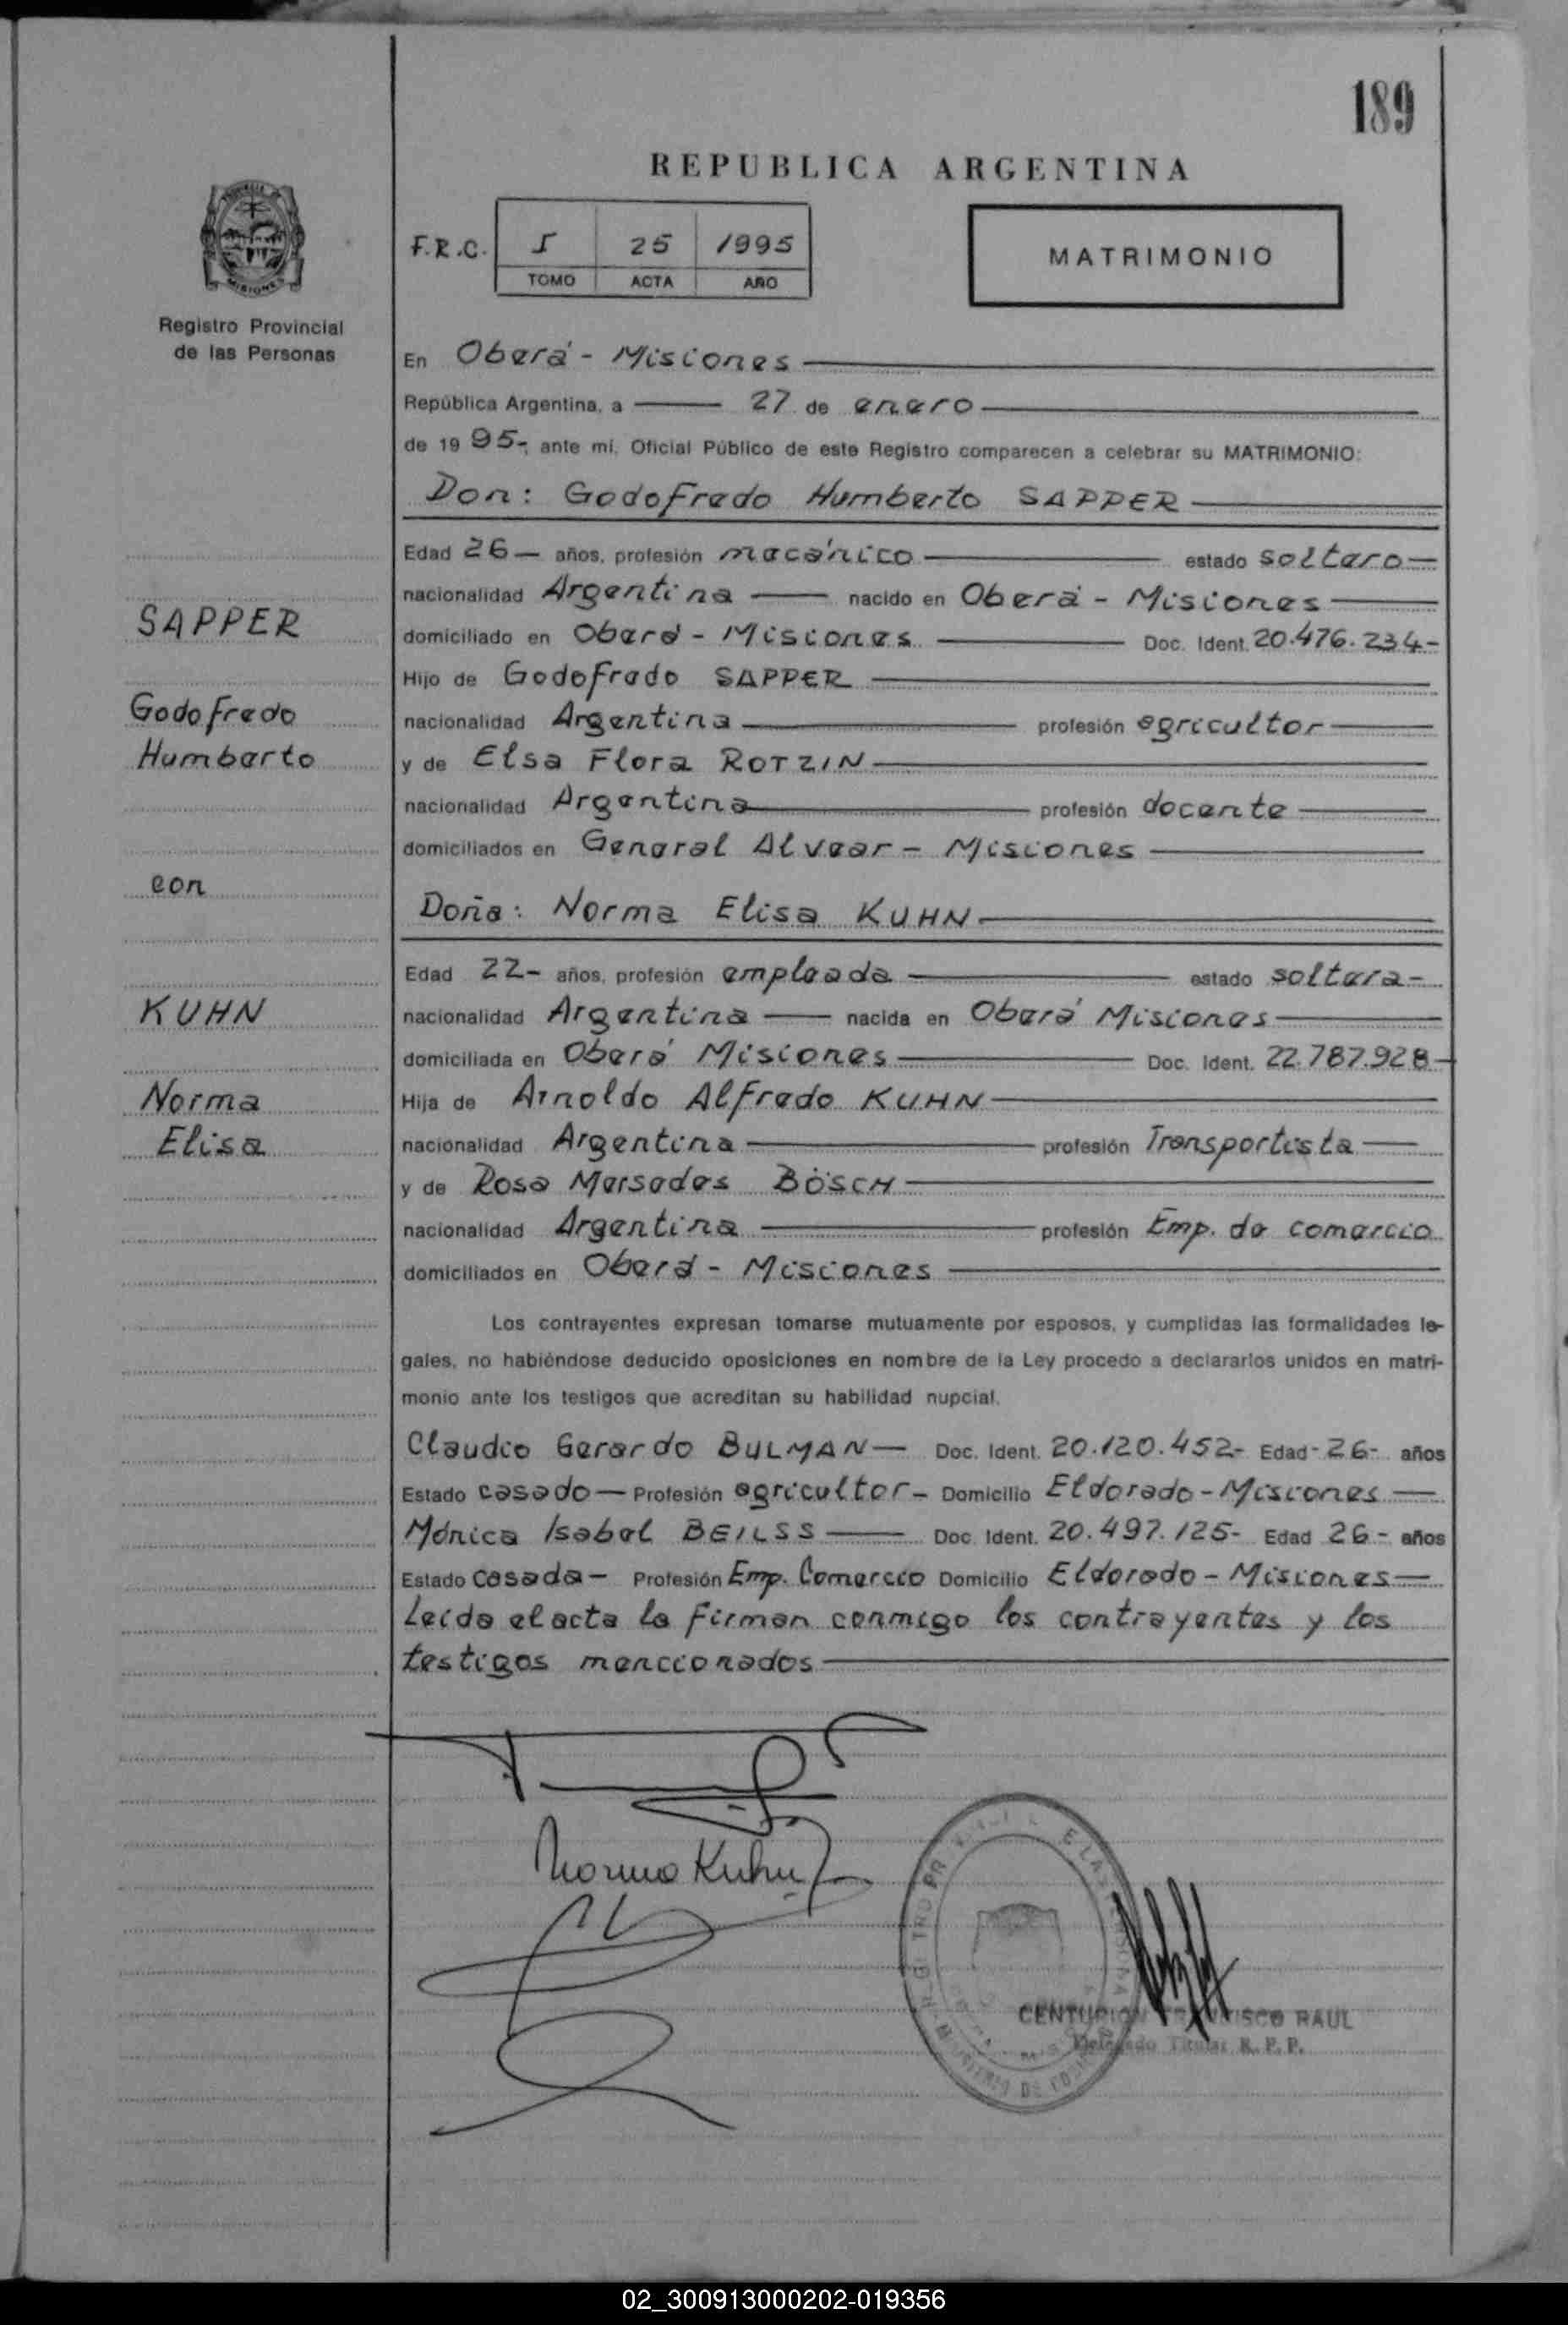 189
REPUBLICA ARGENTINA
F.R.C. I 25 1995
TOMO ACTA AÑO
MATRIMONIO
MISIONES
Registro Provincial
de las Personas
En Oberá - Misiones
República Argentina, a 27 de enero
de 1995-, ante mí, Oficial Público de este Registro comparecen a celebrar su MATRIMONIO:
Don: Godofredo Humberto SAPPER
Edad 26 años, profesión mecánico estado soltero
nacionalidad Argentina nacido en Oberá - Misiones
domiciliado en Oberá - Misiones Doc. Ident. 20.476.234-
Hijo de Godofredo SAPPER
nacionalidad Argentina profesión agricultor
y de Elsa Flora ROTZIN
nacionalidad Argentina profesión docente
domiciliados en General Alvear - Misiones
Doña: Norma Elisa KUHN
Edad 22- años, profesión empleada estado soltera-
nacionalidad Argentina nacida en Oberá Misiones
domiciliada en Oberá Misiones Doc. Ident. 22.787.928-
Hija de Arnoldo Alfredo KUHN
nacionalidad Argentina profesión Transportista
y de Rosa Mersedes BÖSCH
nacionalidad Argentina profesión Emp. de comercio
domiciliados en Oberá - Misiones
SAPPER
Godofredo
Humberto
con
KUHN
Norma
Elisa
Los contrayentes expresan tomarse mutuamente por esposos, y cumplidas las formalidades le-
gales, no habiéndose deducido oposiciones en nombre de la Ley procedo a declararlos unidos en matri-
monio ante los testigos que acreditan su habilidad nupcial.
Claudio Gerardo BULMAN Doc. Ident. 20.120.452- Edad -26- años
Estado casado Profesión agricultor- Domicilio Eldorado - Misiones
Mónica Isabel BEILSS Doc. Ident. 20.497.125- Edad 26- años
Estado casada- Profesión Emp. Comercio Domicilio Eldorado - Misiones
Leída el acta la firman conmigo los contrayentes y los
testigos mencionados
Norma Kuhn
CENTURION FRANCISCO RAUL
Delegado Titular R. P. P.
02_300913000202-019356